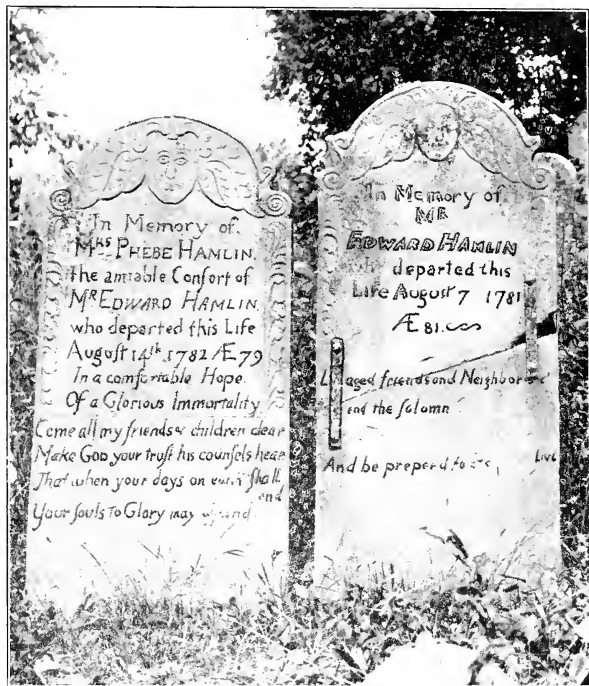 In Memory of
Mrs PHEBE HAMLIN.
the amiable Conſort of
Mr EDWARD HAMLIN
who departed this Life
Auguſt 14th 1782 Æ 79
In a comfortable Hope
Of a Glorious Immortality
Come all my friends & children dear
Make GOD your truſt his counſels hear
That when your days on earth ſhall
end
Your ſouls To Glory may aſcend
In Memory of
MR
EDWARD HAMLIN
departed this
Life Auguſt 7 1781
Æ 81.
aged friends and Neighbors
end the ſolamn
And be preperd to